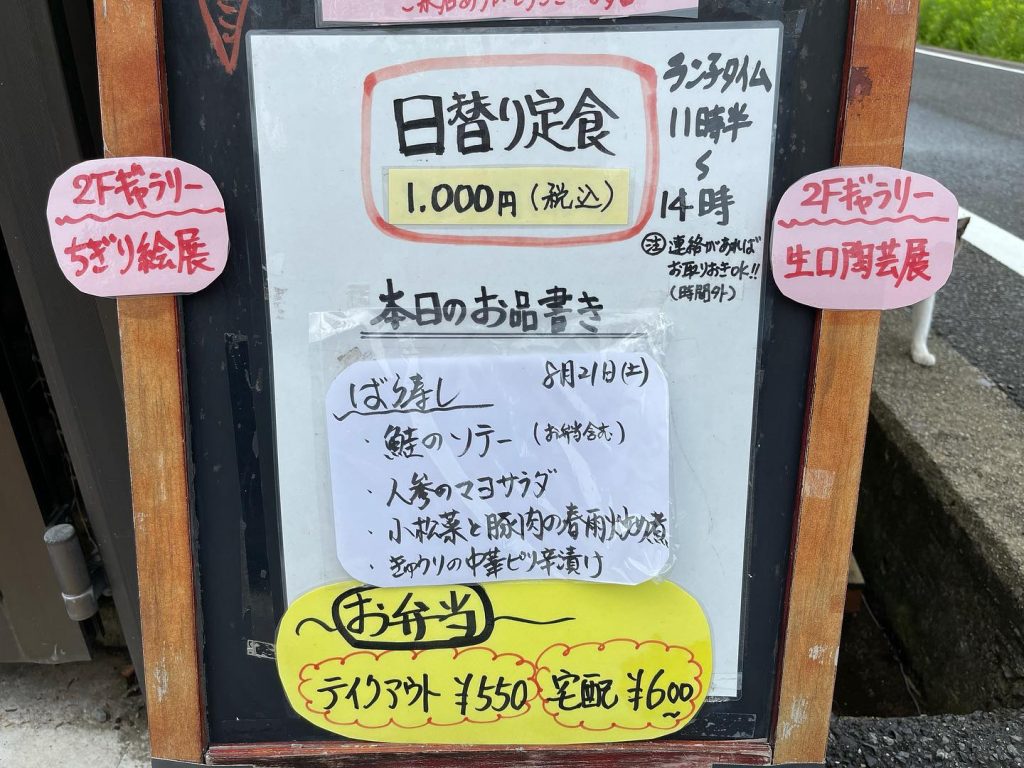 ご来店ありがとうございます
日替り定食
1.000円(税込)
ランチタイム
11時半
〜
14時
注 連絡があれば
お取りおきOK!!
(時間外)
2Fギャラリー
ちぎり絵展
2Fギャラリー
生口陶芸展
本日のお品書き
8月21日(土)
ばら寿し
・鮭のソテー (お弁当含む)
・人参のマヨサラダ
・小松菜と豚肉の春雨炒め煮
・きゅウリの中華ピリ辛漬け
お弁当
テイクアウト ¥550
宅配 ¥600